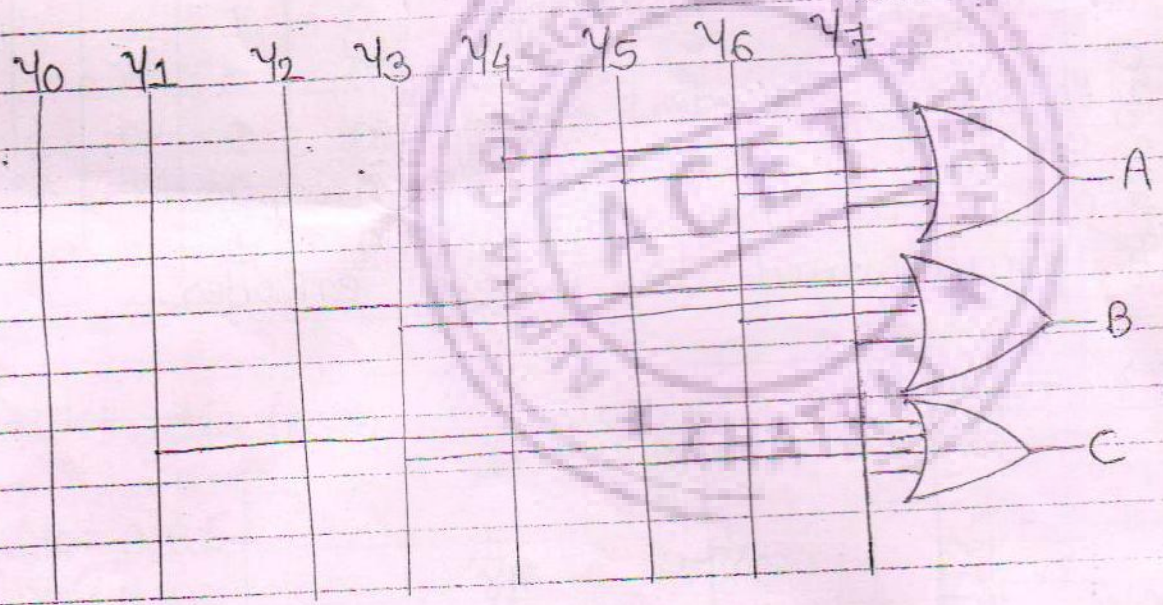 Y0 Y1 Y2 Y3 Y4 Y5 Y6 Y7
A
B
C
ACET